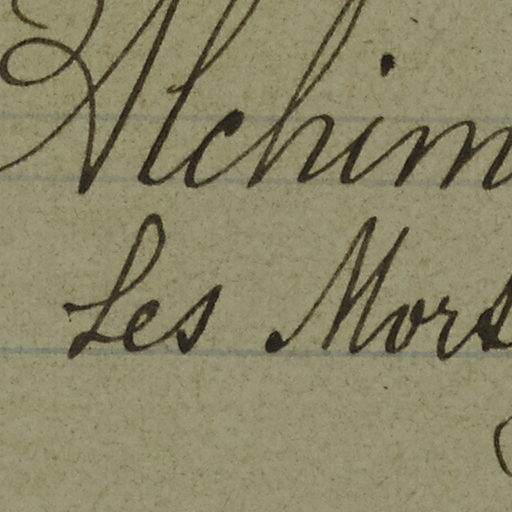 Alchim
Les Mors